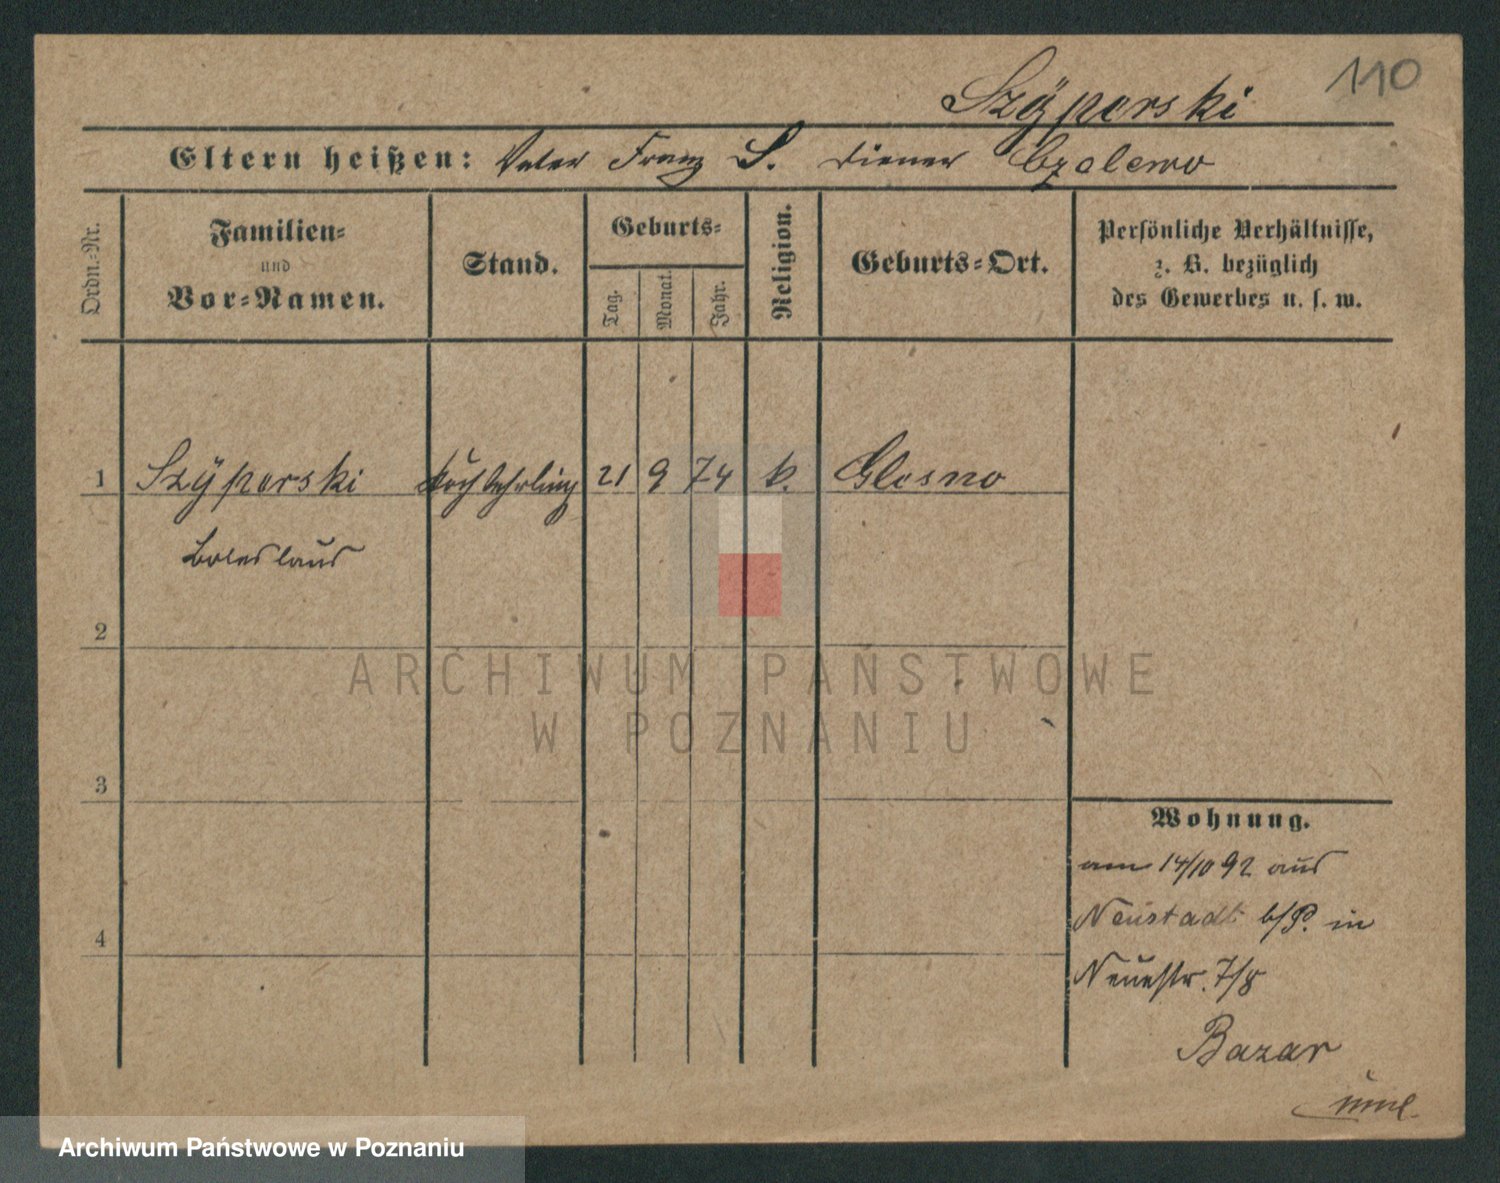 110
Szÿperski
Eltern heißen: Vater Franz S. Diener Czalewo
Ordn.-Nr.
Familien-
und
Vor-Namen.
Stand.
Geburts-
Tag.
Monat.
Jahr.
Religion.
Geburts-Ort.
Persönliche Verhältnisse,
z. B. bezüglich
des Gewerbes u. s. w.
1 Szÿperski Kochlehrling 21 9 74 k. Glesno
Boleslaus
2
3
4
ARCHIWUM PAŃSTWOWE
W POZNANIU
Wohnung.
am 14/10 92 aus
Neustadt b/P. in
Neuestr. 7/8
Bazar
Archiwum Państwowe w Poznaniu